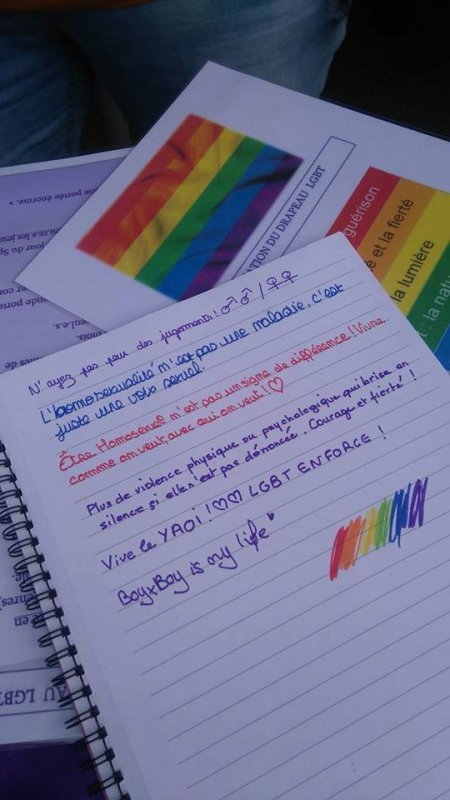 guérison
e et la fierté
la lumière
: la natu
ATION DU DRAPEAU LGBT
ne portée énorme. "
Jour du Sp
N'ayez pas peur des jugements! ♂♂ / ♀♀
L'homosexualité n'est pas une maladie, c'est
juste une voie sexuel.
Être Homosexuel n'est pas un signe de différance! Vivre
comme on veut, avec qui on veut! ♡
Plus de violence physique ou psychologique qui brise en
silence si elle n'est pas dénoncée. Courage et fierté!
Vive le YAOI! ♡♡ LGBT EN FORCE!
Boy x Boy is my life"
AU LGBT